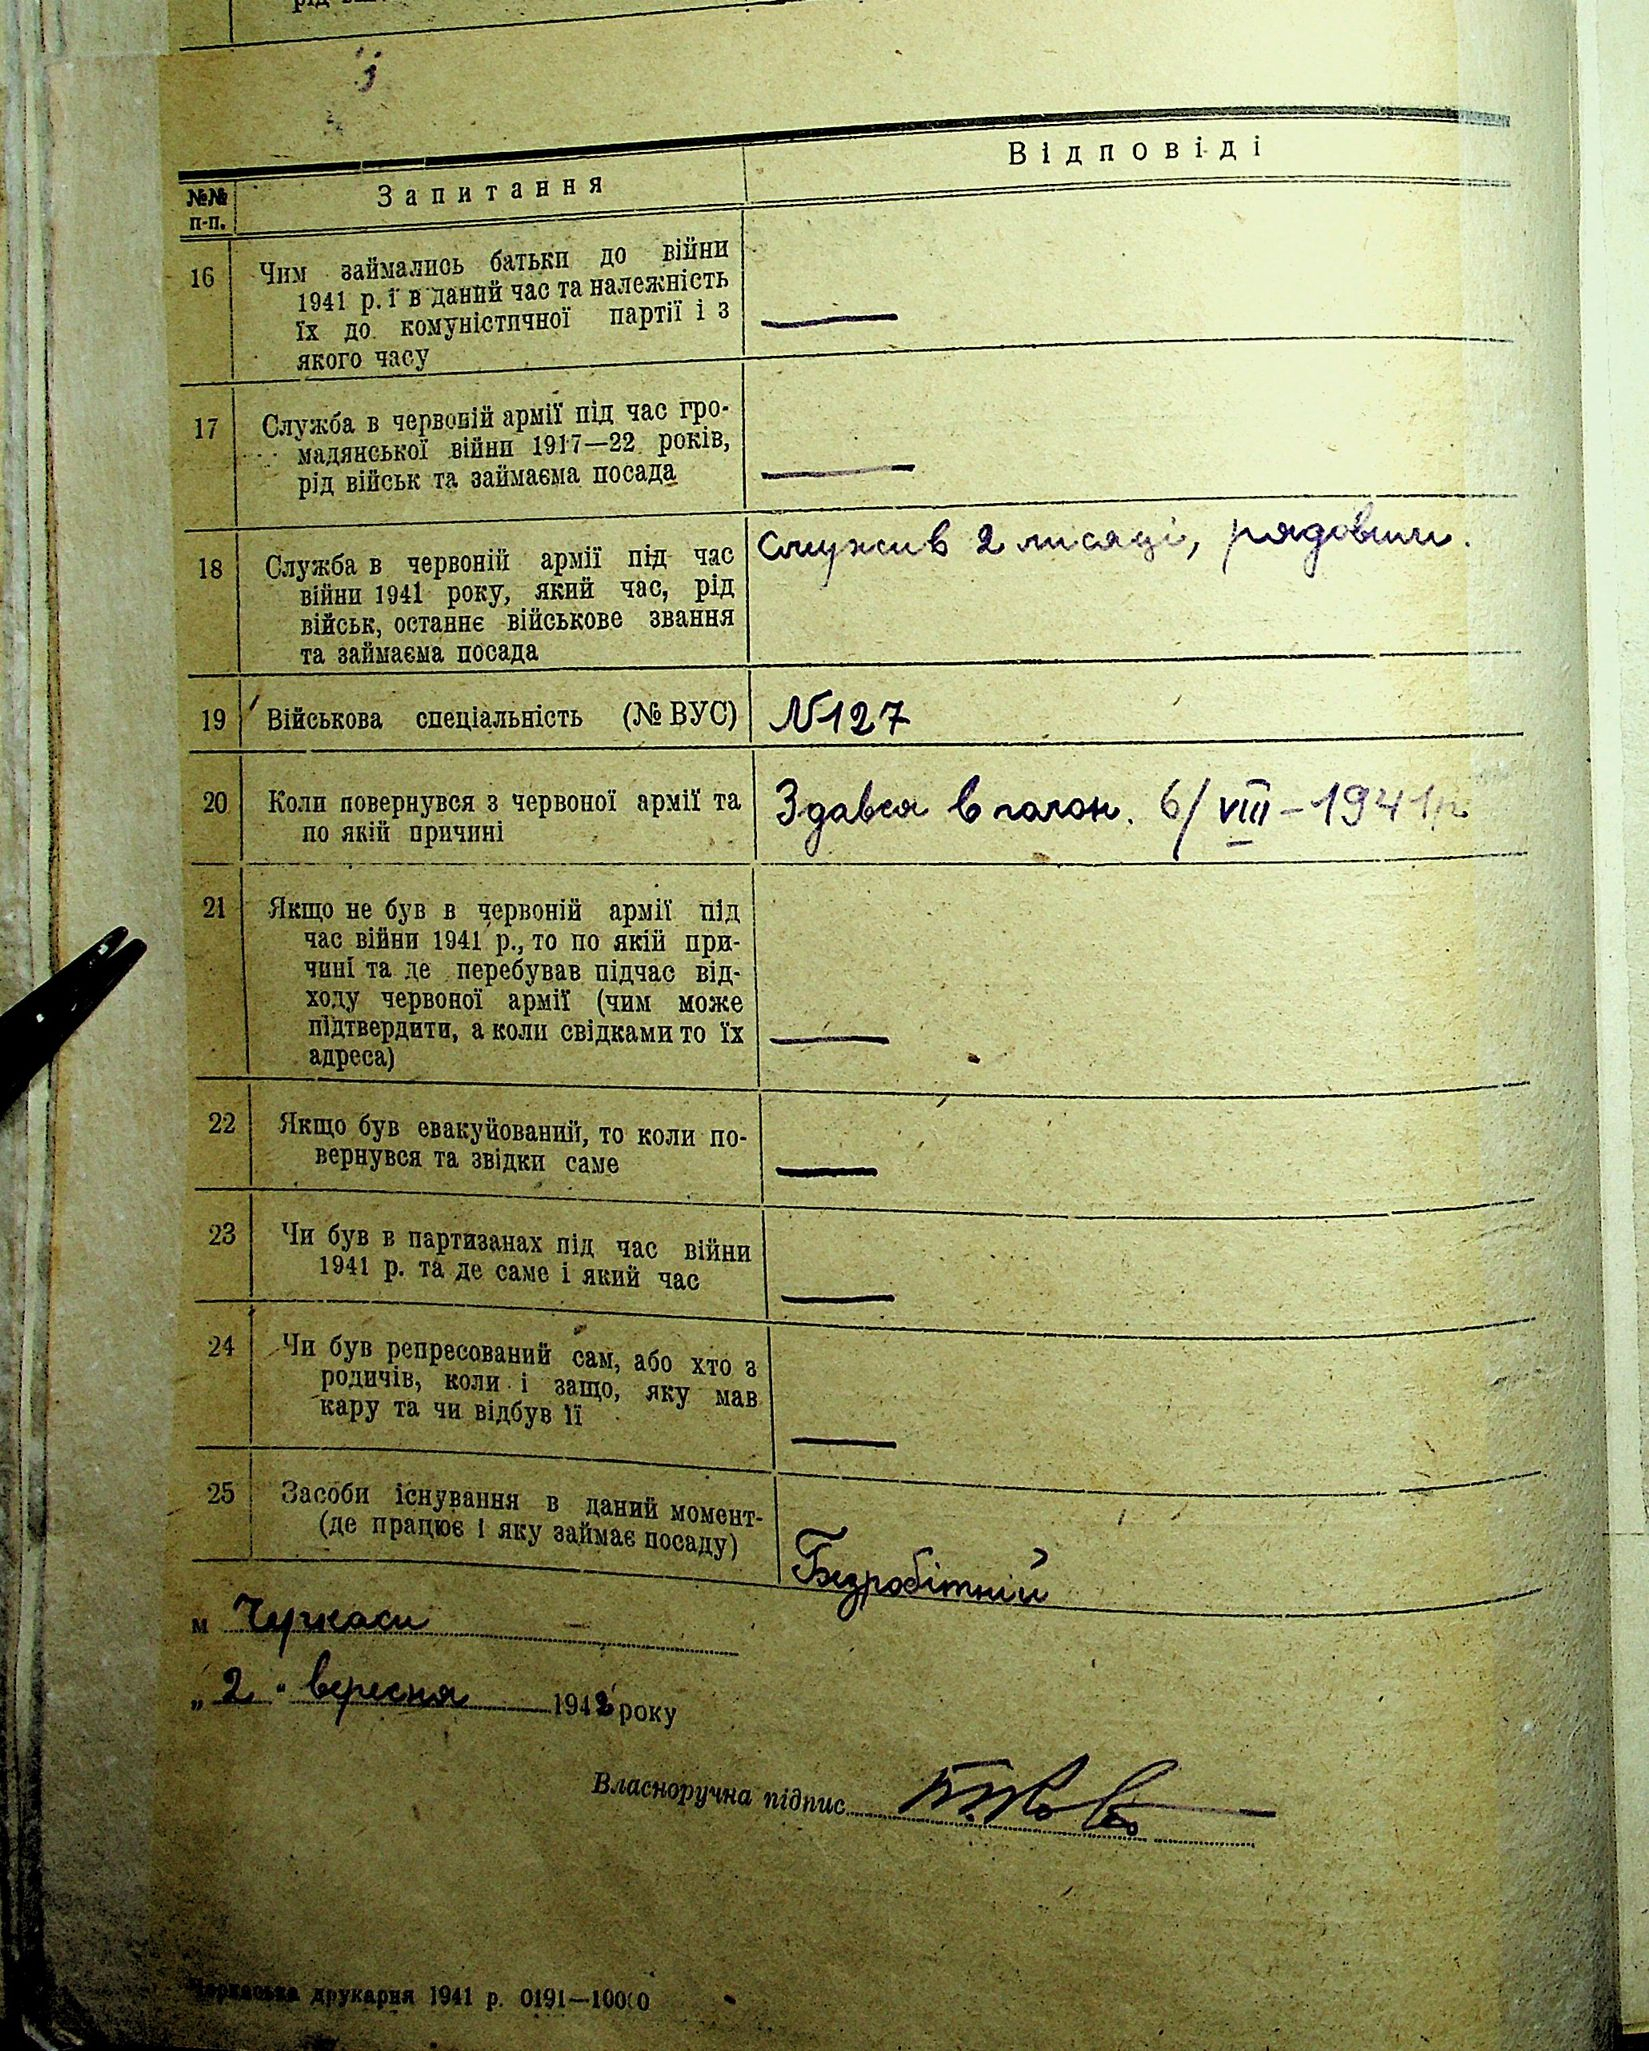 №№
п-п.
Запитання
Відповіді
16
Чим займались батьки до війни
1941 р. і в даний час та належність
їх до комуністичної партії і з
якого часу
17
Служба в червоній армії під час гро-
мадянської війни 1917—22 років,
рід військ та займаєма посада
18
Служба в червоній армії під час
війни 1941 року, який час, рід
військ, останнє військове звання
та займаєма посада
Служив 2 місяці, рядовим.
19
Військова спеціальність (№ ВУС)
N127
20
Коли повернувся з червоної армії та
по якій причині
Здався в полон. 6/VIII-1941р.
21
Якщо не був в червоній армії під
час війни 1941 р., то по якій при-
чині та де перебував підчас від-
ходу червоної армії (чим може
підтвердити, а коли свідками то їх
адреса)
22
Якщо був евакуйований, то коли по-
вернувся та звідки саме
23
Чи був в партизанах під час війни
1941 р. та де саме і який час
24
Чи був репресований сам, або хто з
родичів, коли і защо, яку мав
кару та чи відбув її
25
Засоби існування в даний момент-
(де працює і яку займає посаду)
Безробітний
м Черкаси
„2" вересня 1942 року
Власноручна підпис
Черкаська друкарня 1941 р. 0191—10000